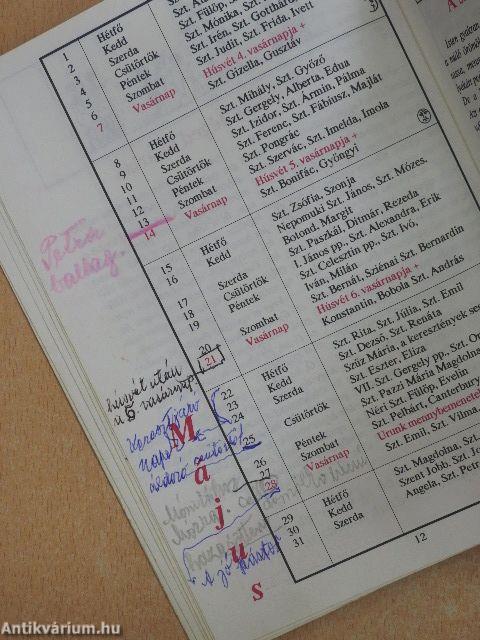 1 Hétfő
2 Kedd Szt. Fülöp,
3 Szerda Szt. Mónika,
4 Csütörtök Szt. Irén, Szt. Gotthárd
5 Péntek Szt. Judit, Szt. Frida, Ivett
6 Szombat Húsvét 4. vasárnapja +
7 Vasárnap Szt. Gizella, Gusztáv
8 Hétfő Szt. Mihály, Szt. Győző
9 Kedd Szt. Gergely, Alberta, Edua
10 Szerda Szt. Izidor, Szt. Ármin, Pálma
11 Csütörtök Szt. Ferenc, Szt. Fábiusz, Majlát
12 Péntek Szt. Pongrác
13 Szombat Szt. Szervác, Szt. Imelda, Imola
14 Vasárnap Húsvét 5. vasárnapja +
Szt. Bonifác, Gyöngyi
Petra
ballag.
15 Hétfő Szt. Zsófia, Szonja
16 Kedd Nepomuki Szt. János, Szt. Mózes,
Botond, Margit
17 Szerda Szt. Paszkál, Ditmár, Rezeda
18 Csütörtök I. János pp., Szt. Alexandra, Erik
19 Péntek Szt. Celesztin pp., Szt. Ivó,
Iván, Milán
20 Szombat Szt. Bernát, Sziénai Szt. Bernardin
21 Vasárnap Húsvét 6. vasárnapja +
Konstantin, Bobola Szt. András
húsvét után
6 vasárnap
22 Hétfő Szt. Rita, Szt. Júlia, Szt. Emil
23 Kedd Szt. Dezső, Szt. Renáta
24 Szerda Szűz Mária, a keresztények se
Szt. Eszter, Eliza
25 Csütörtök VII. Szt. Gergely pp., Or
Szt. Pazzi Mária Magdolna
26 Péntek Néri Szt. Fülöp, Evelin
27 Szombat Szt. Pelbárt, Canterbury
28 Vasárnap Urunk mennybemenetele
Szt. Emil, Szt. Vilma,
áldozó csütörtök
29 Hétfő Szt. Magdolna, Szt.
30 Kedd Szent Jobb, Szt. J
31 Szerda Angela, Szt. Pet
Május
12
Antikvárium.hu